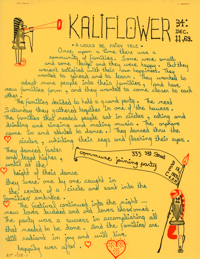 KALIFLOWER
DEC.
A WOULD BE FAIRY TALE
Once upon a time there was a
community of families. Some were small
and some large and they were happy. But they
weren't satisfied with their own happiness. They
wanted to spread and to learn. They wanted to
adopt more people into their families, and have
new families form, and they wanted to come closer to each
other.
The families decided to hold a grand party. The next
Saturday they gathered together in one of the houses.
The families that needed people sat in circles, eating and
drinking and singing and making music. The orphans
came in and started to dance. They danced thru the
circles, whirling their legs and flashing their eyes.
They danced faster
and leaped higher,
until at the
height of their dance
they were one by one caught in
the center of a circle and sank into the
families' embrace.
The festival continued into the night
new loves budded and old loves blossomed.
The party was a success in accomplishing all
that needed to be done. And the families are
still radiant in joy and will live
happily ever after.
commune joining party